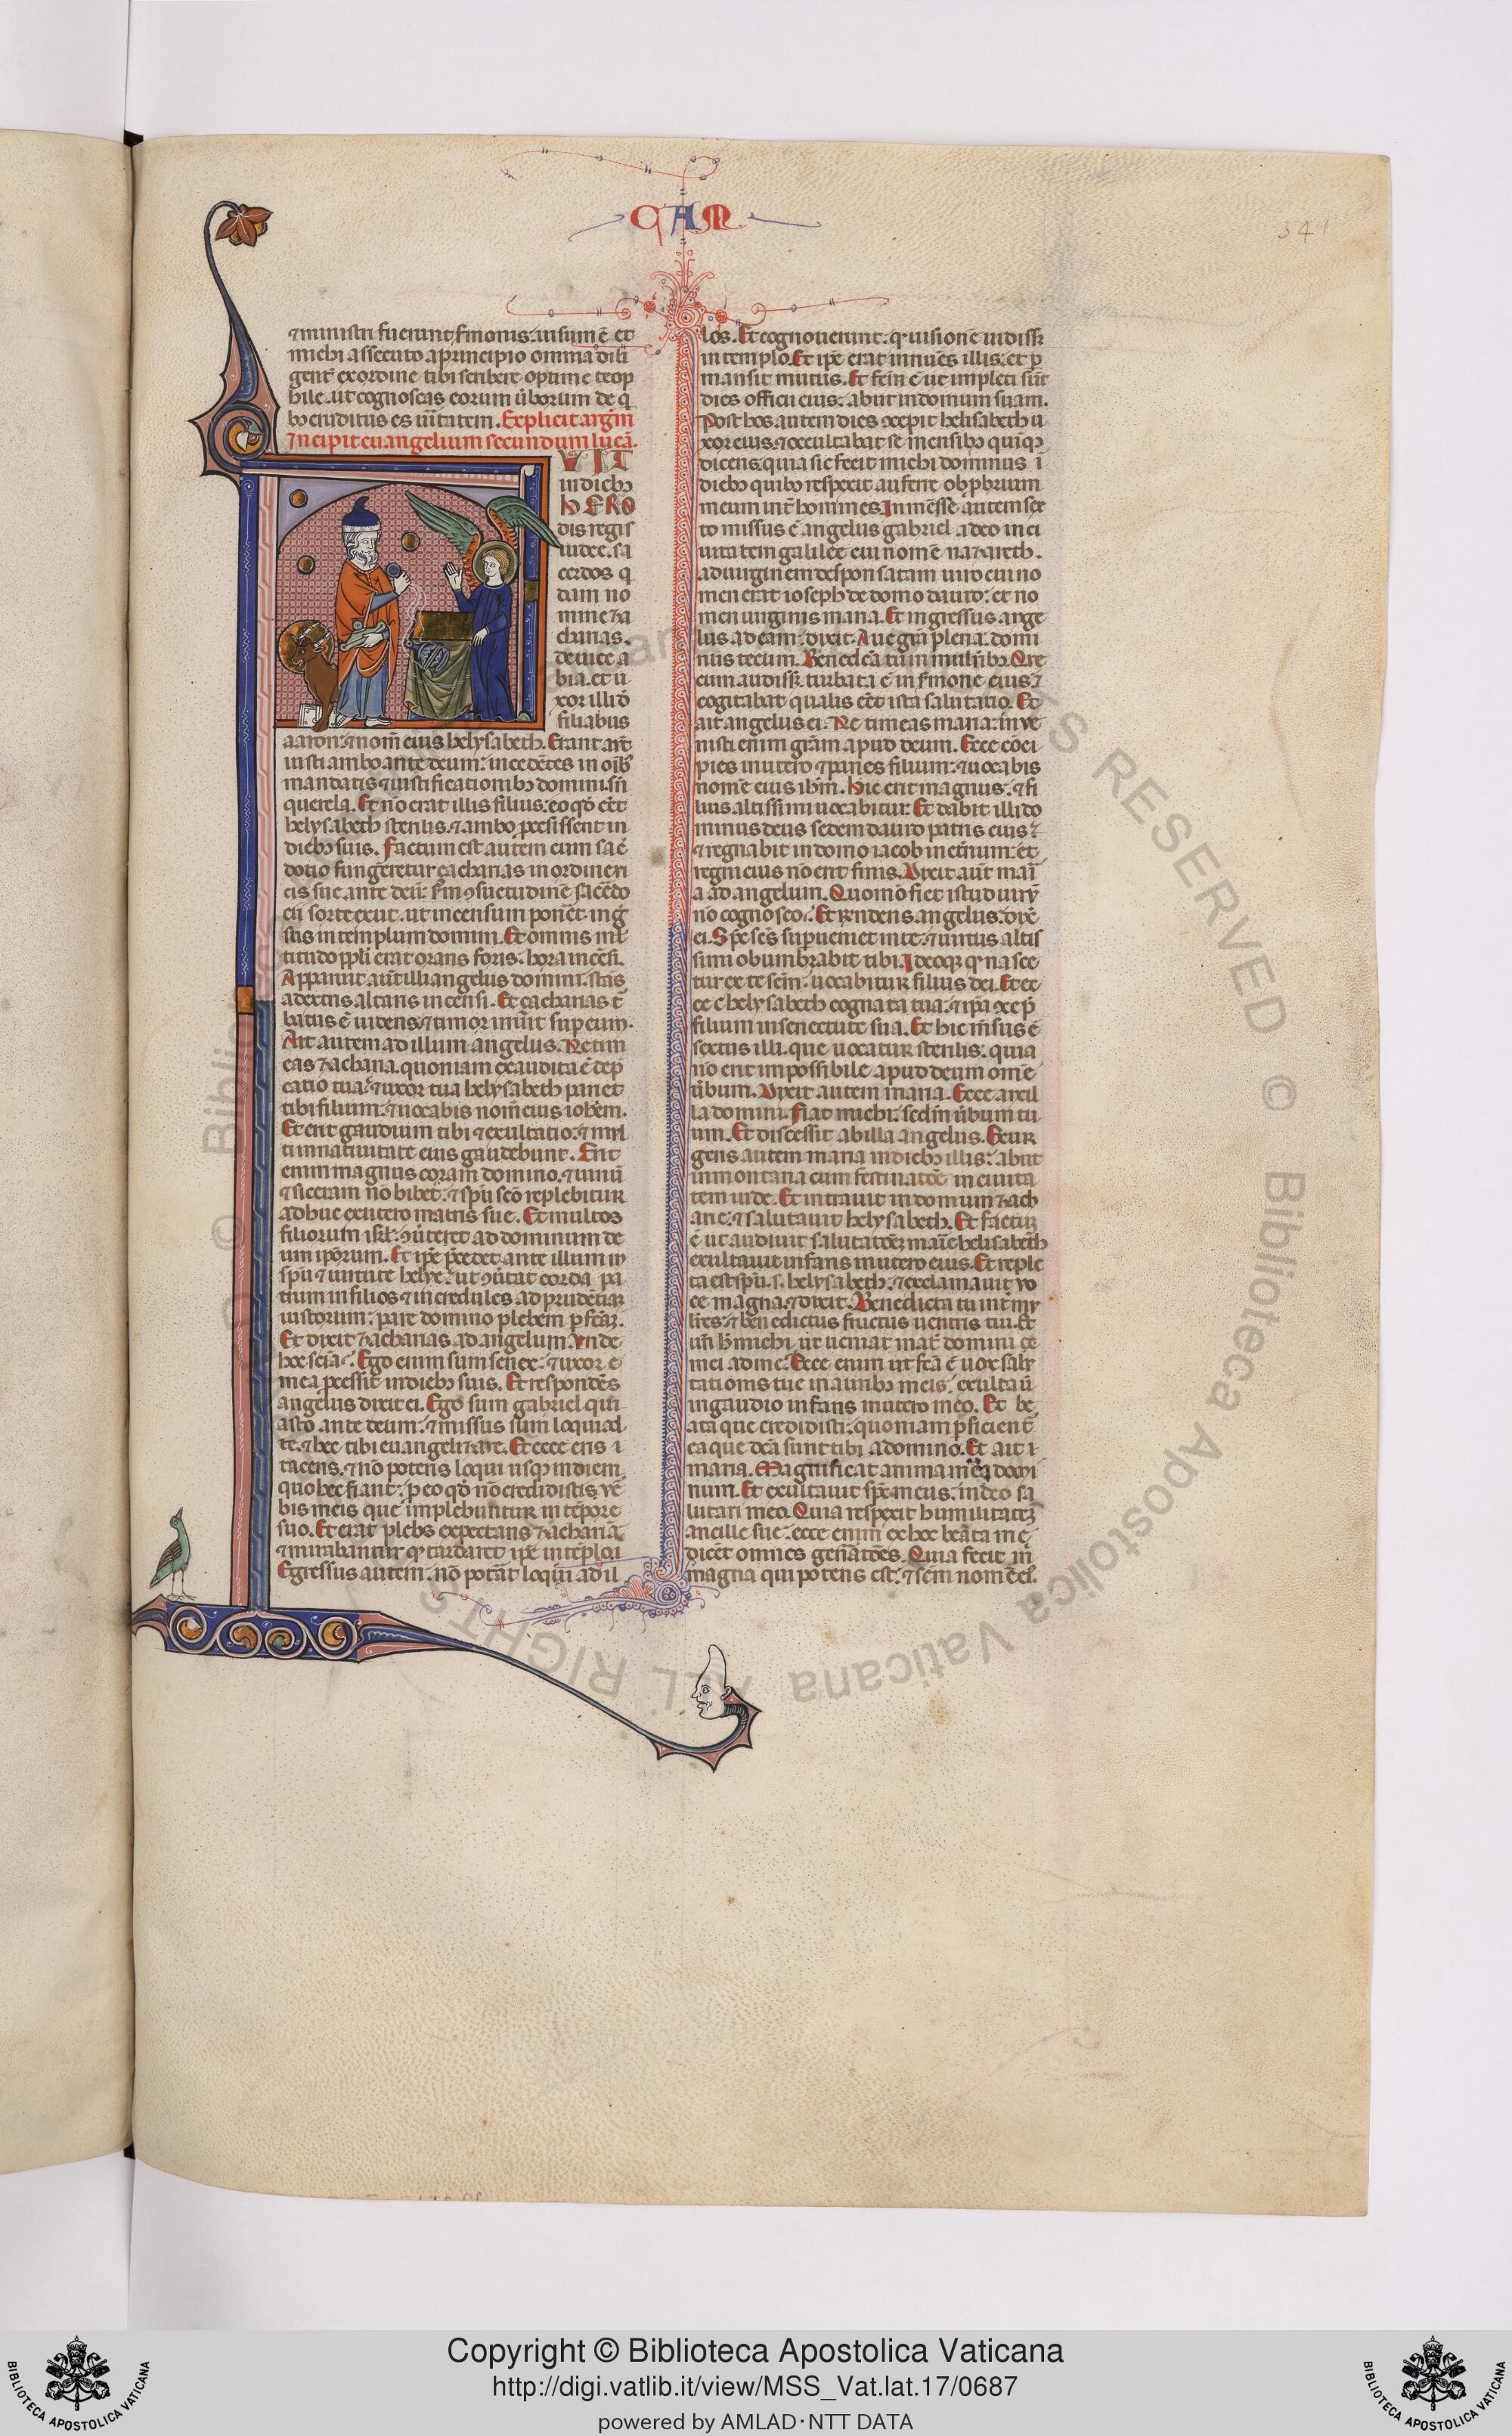 CAM
341
⁊ ministri fuerunt sermonis. uisum ē et
michi assecuto a principio omnia dili
gent̄ ex ordine tibi scribere optime teop
hile. ut cognoscas eorum ūborum de q̄
bꝫ eruditus es ūitatem. Explicit argm̄
Incipit euangelium secundum lucā.
VIT
in diebꝫ
hERO
dis regis
iudee. sa
cerdos q
dam no
mine ȝa
charias.
de uice a
bia. et u
xor illi đ
filiabus
aaron. ⁊ nom̄ eius helysabeth. Erant aūt
iusti ambo ante deum. incedētes in oībꝫ
mandatis ⁊ iustificationibꝫ domini. sn̄
querela. Et nō erat illis filius. eo qđ eēt
helysabeth sterilis. ⁊ ambo p̄cessissent in
diebꝫ suis. Factum est autem cum sac̄
dotio fungeretur ȝacharias in ordine ui
cis sue. ante deū. sm̄ ꝯsuetudinē sac̄do
cii sorte exiit. ut incensum pon̄et. inḡ
ssus in templum domini. Et omnis ml̄
titudo ppl̄i erat orans foris. hora incēsi.
Apparuit aūt illi angelus domini. stās
a dextris altaris incensi. Et ȝacharias t̄
batus ē uidens. ⁊ timor irruit sup̄ eum.
Ait autem ad illum angelus. Ne tim
eas ȝacharia. quoniam exaudita ē dep̄
catio tua. ⁊ uxor tua helysabeth pariet
tibi filium. ⁊ uocabis nom̄ eius ioh̄em.
Et erit gaudium tibi ⁊ exultatio. ⁊ ml̄
ti in natiuitate eius gaudebunt. Erit
enim magnus coram domino. ⁊ uinū
⁊ siceram nō bibet. ⁊ spū scō replebitur
adhuc ex utero matris sue. Et multos
filiorum isrl̄. ꝯūtet ad dominum de
um ip̄orum. Et ip̄e p̄cedet ante illum in
spū ⁊ uirtute helye. ut ꝯūtat corda pa
trum in filios ⁊ incredules ad prudētiaꝫ
iustorum. parare domino plebem ꝑfc̄aꝫ.
Et dixit ȝacharias ad angelum. Vnde
hoc sciā. Ego enim sum senex. ⁊ uxor e
mea p̄cessit in diebꝫ suis. Et respondēs
angelus dixit ei. Ego sum gabriel qui
asto ante deum. ⁊ missus sum loqui ad
te. ⁊ hec tibi euangeliȝare. Et ecce eris i
tacens. ⁊ nō potens loqui usqꝫ in diem
quo hec fiant. p̄ eo qđ nō credidistis ue
bis meis que implebuntur in tēpore
suo. Et erat plebs expectans ȝachariā
⁊ mirabantur qđ tardaret ip̄e in tēplo.
Egressus autem. nō pot̄at loqui ad il
los. Et cognouerunt. qđ uisionē uidiss̄
in templo. Et ip̄e erat innuēs illis. et ꝑ
mansit mutus. Et fc̄m ē ut impleti sūt
dies officii eius. abiit in domum suam.
Post hos autem dies ꝯcepit helisabeth u
xor eius. ⁊ occultabat se mensibꝫ quinqꝫ
dicens. quia sic fecit michi dominus i
diebꝫ quibꝫ respexit auferre obp̄brium
meum int̄ homines. In mēsse autem sex
to missus ē angelus gabriel a deo in ci
uitatem galilee cui nomē naȝareth.
ad uirginem desponsatam uiro cui no
men erat ioseph de domo dauid. et no
men uirginis maria. Et ingressus ange
lus ad eam. dixit. Aue gr̄a plena. domi
nus tecum. Benedc̄a tu in mul̄ibꝫ. Que
cum audiss̄. turbata ē in s̄mone eius. ⁊
cogitabat qualis eēt ista salutatio. Et
ait angelus ei. Ne timeas maria. inue
nisti enim gr̄am apud deum. Ecce cōci
pies in utero ⁊ paries filium. ⁊ uocabis
nomē eius ih̄m. Hic erit magnus. ⁊ fi
lius altissimi uocabitur. Et dabit illi do
minus deus sedem dauid patris eius.
⁊ regnabit in domo iacob in et̄num. et
regni eius nō erit finis. Dixit aūt mari
a ad angelum. Quomō fiet istud. uirū
nō cognosco. Et r̄ndens angelus. dix̄
ei. Sp̄c sc̄s sup̄ueniet in te. ⁊ uirtus altis
simi obumbrabit tibi. Ideoqꝫ qđ nasce
tur ex te sc̄m. uocabitur filius dei. Et ec
ce helysabeth cognata tua. ⁊ ip̄a ꝯcep̄
filium in senectute sua. Et hic m̄sus ē
sextus illi. que uocatur sterilis. quia
nō erit impossibile apud deum omē
ūbum. Dixit autem maria. Ecce ancil
la domini. Fiat michi. sedm̄ ūbum tu
um. Et discessit ab illa angelus. Exur
gens autem maria in diebꝫ illis. abiit
in montana cum festinatōe in ciuita
tem iude. Et intrauit in domum ȝach
arie. ⁊ salutauit helysabeth. Et factuꝫ
ē ut audiuit salutatōeꝫ marie helisabeth
exultauit infans in utero eius. Et reple
ta est spū. s. helysabeth. ⁊ exclamauit uo
ce magna. ⁊ dixit. Benedicta tu int̄ mu
lr̄es. ⁊ benedictus fructus uentris tui. Et
uñ h̄ michi. ut ueniat mat̄ domini
mei ad me. Ecce enim ut fc̄a ē uox salu
tationis tue in auribꝫ meis. exultauit
in gaudio infans in utero meo. Et be
ata que credidisti. quoniam ꝑficient̄
ea que dc̄a sunt tibi a domino. Et ait
maria. Magnificat anima mea domi
num. Et exultauit sp̄c meus. in deo sa
lutari meo. Quia respexit humilitateꝫ
ancille sue. ecce enim ex hoc beata me
dicent omnes gen̄atōes. Quia fecit m̄
magna qui potens est. ⁊ sc̄m nomē ei.
© Biblioteca Apostolica Vaticana ALL RIGHTS RESERVED
Copyright © Biblioteca Apostolica Vaticana
http://digi.vatlib.it/view/MSS_Vat.lat.17/0687
powered by AMLAD·NTT DATA
BIBLIOTECA APOSTOLICA VATICANA
BIBLIOTECA APOSTOLICA VATICANA